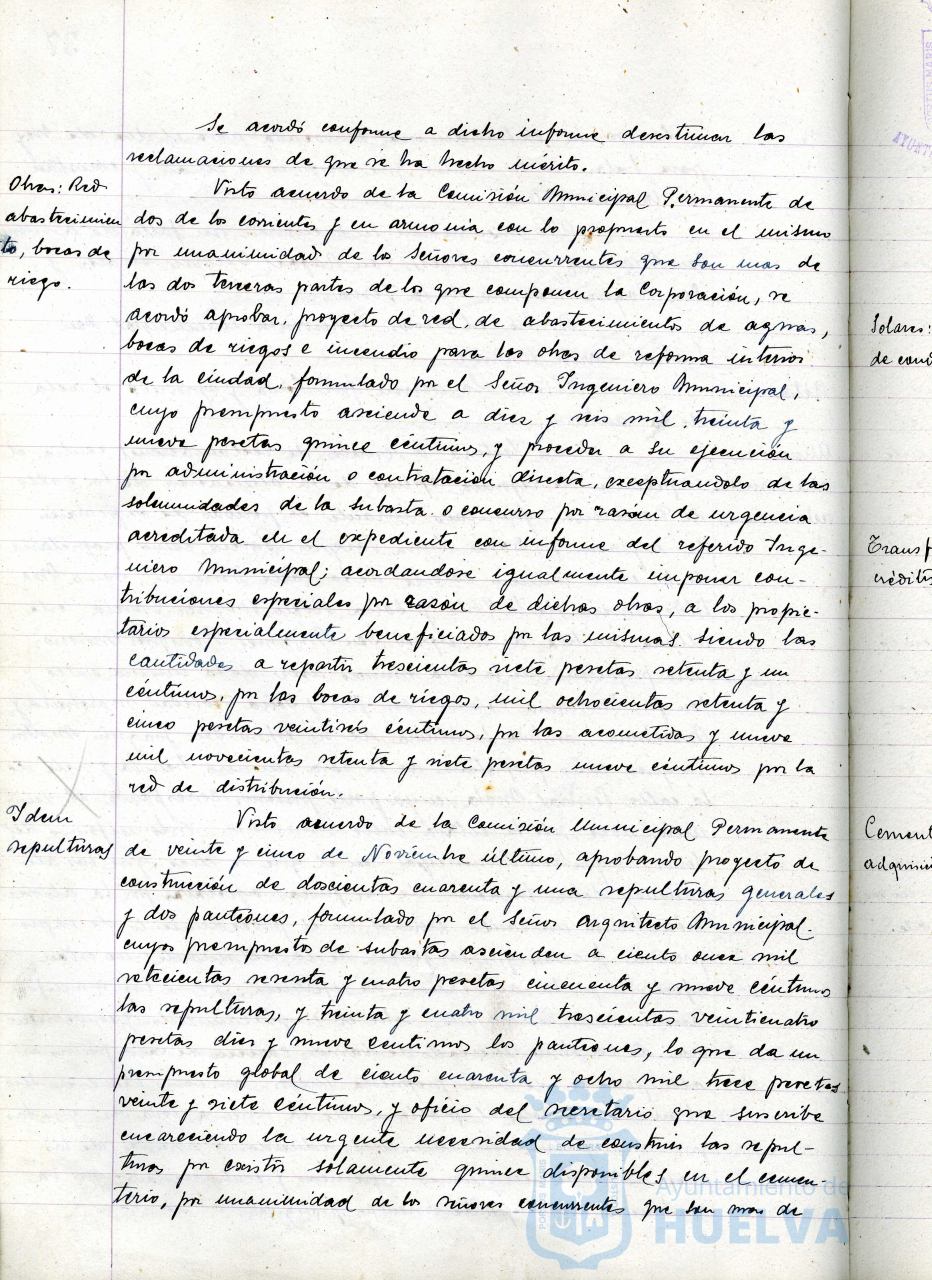 Se acordó conforme a dicho informe desestimar las
reclamaciones de que se ha hecho mérito.
Obras: Red
abastecimien
to, bocas de
riego.
Visto acuerdo de la Comisión Municipal Permanente de
dos de los corrientes y en armonia con lo propuesto en el mismo
por unanimidad de los Señores concurrentes que son mas de
las dos terceras partes de los que componen la Corporación, se
acordó aprobar, proyecto de red, de abastecimientos de aguas,
bocas de riegos e incendio para las obras de reforma interior
de la ciudad, formulado por el Señor Ingeniero Municipal,
cuyo presupuesto asciende a diez y seis mil, treinta y
nueve pesetas quince céntimos, y proceder a su ejecución
por administración o contratación directa, exceptuandolo de las
solemnidades de la subasta o concurso por razón de urgencia
acreditada en el expediente con informe del referido Inge-
niero Municipal; acordandose igualmente imponer con-
tribuciones especiales por razón de dichas obras, a los propie-
tarios especialmente beneficiados por las mismas siendo las
cantidades a repartir trescientas siete pesetas setenta y un
céntimos, por las bocas de riegos, mil ochocientas setenta y
cinco pesetas veintiseis céntimos, por las acometidas y nueve
mil novecientas setenta y siete pesetas nueve céntimos por la
red de distribución.
Idem
sepulturas
Visto acuerdo de la Comisión Municipal Permanente
de veinte y cinco de Noviembre último, aprobando proyecto de
construcción de doscientas cuarenta y una sepulturas generales
y dos panteones, formulado por el Señor Arquitecto Municipal.
cuyos presupuestos de subastas ascienden a ciento once mil
setecientas sesenta y cuatro pesetas cincuenta y nueve céntimos
las sepulturas, y treinta y cuatro mil trescientas veinticuatro
pesetas diez y nueve centimos los panteones, lo que da un
presupuesto global de ciento cuarenta y ocho mil trece pesetas
veinte y siete céntimos, y oficio del secretario que suscribe
encareciendo la urgente necesidad de construir las sepul-
turas por existir solamente quince disponibles en el cemen-
terio, por unanimidad de los señores concurrentes que son mas de
Solares:
de cond
Transf
crédito
Cement
adquisici
Ayuntamiento de
HUELVA